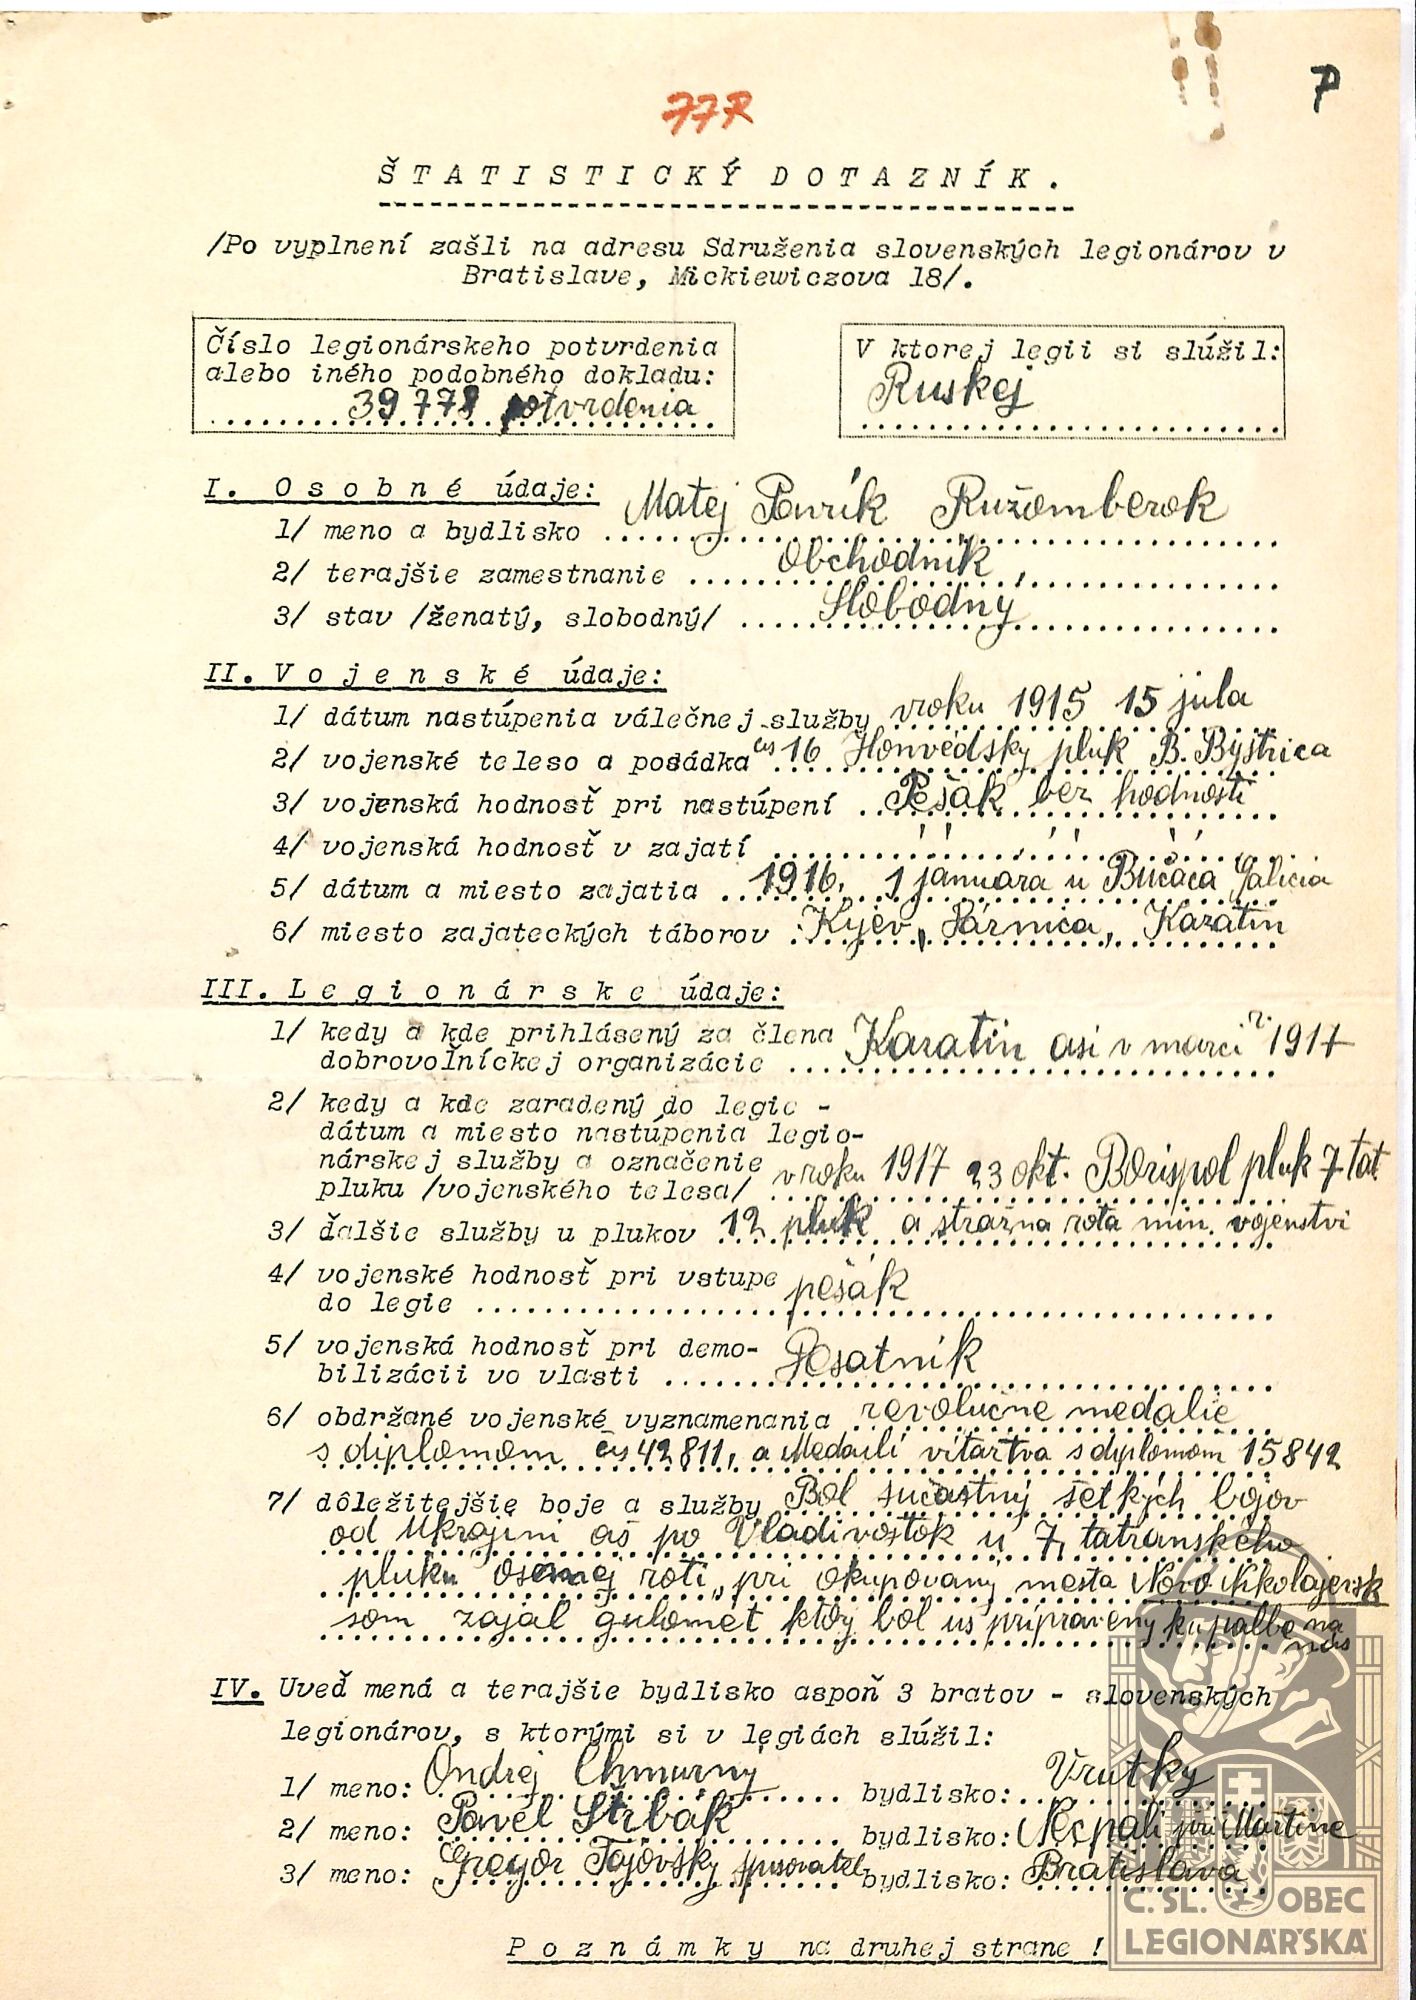 77R
7
ŠTATISTICKÝ DOTAZNÍK.
/Po vyplnení zašli na adresu Sdruženia slovenských legionárov v
Bratislave, Mickiewiczova 18/.
Číslo legionárskeho potvrdenia
alebo iného podobného dokladu:
39778 potvrdenia
V ktorej legii si slúžil:
Ruskej
I. Osobné údaje:
1/ meno a bydlisko Matej Ružomberok
2/ terajšie zamestnanie Obchodník
3/ stav /ženatý, slobodný/ Slobodny
II. Vojenské údaje:
1/ dátum nastúpenia válečnej služby vroku 1915 15 jula
2/ vojenské teleso a posádka čis 16 Honvédsky pluk B. Bystrica
3/ vojenská hodnosť pri nastúpení Pešák bez hodnosti
4/ vojenská hodnosť v zajatí
5/ dátum a miesto zajatia 1916. 1 januára u Bučača Galicia
6/ miesto zajateckých táborov Kyjev, Dárnica, Kazatin
III. Legionárske údaje:
1/ kedy a kde prihlásený za člena
dobrovoľníckej organizácie Kazatin asi v marci r. 1917
2/ kedy a kde zaradený do legie -
dátum a miesto nastúpenia legio-
nárskej služby a označenie
pluku /vojenského telesa/ vroku 1917 23 okt. Borispol pluk 7 tat
3/ ďalšie služby u plukov 12 pluk a stražna rota min. vojenstvi
4/ vojenské hodnosť pri vstupe
do legie pešák
5/ vojenská hodnosť pri demo-
bilizácii vo vlasti Desatnik
6/ obdržané vojenské vyznamenania revolučne medalie
s diplomom čis 42811, a Medaili vitaztva s dyplomom 15842
7/ dôležitejšie boje a služby Bol sučastny šetkých bojov
od Ukrajini aš po Vladivostok u 7 tatranského
pluku osemej roti, pri okupovany mesta Novo Nikolajevsk
som zajal gulomet ktory bol uš pripraveny ku palbe na
nás
IV. Uveď mená a terajšie bydlisko aspoň 3 bratov - slovenských
legionárov, s ktorými si v legiách slúžil:
1/ meno: Ondrej Chmurny bydlisko: Vrutky
2/ meno: Pavel Štrbák bydlisko: Necpali pri Martine
3/ meno: Gregor Tajovsky spisovatel bydlisko: Bratislava
Poznámky na druhej strane !
Č. SL. OBEC
LEGIONÁŘSKÁ